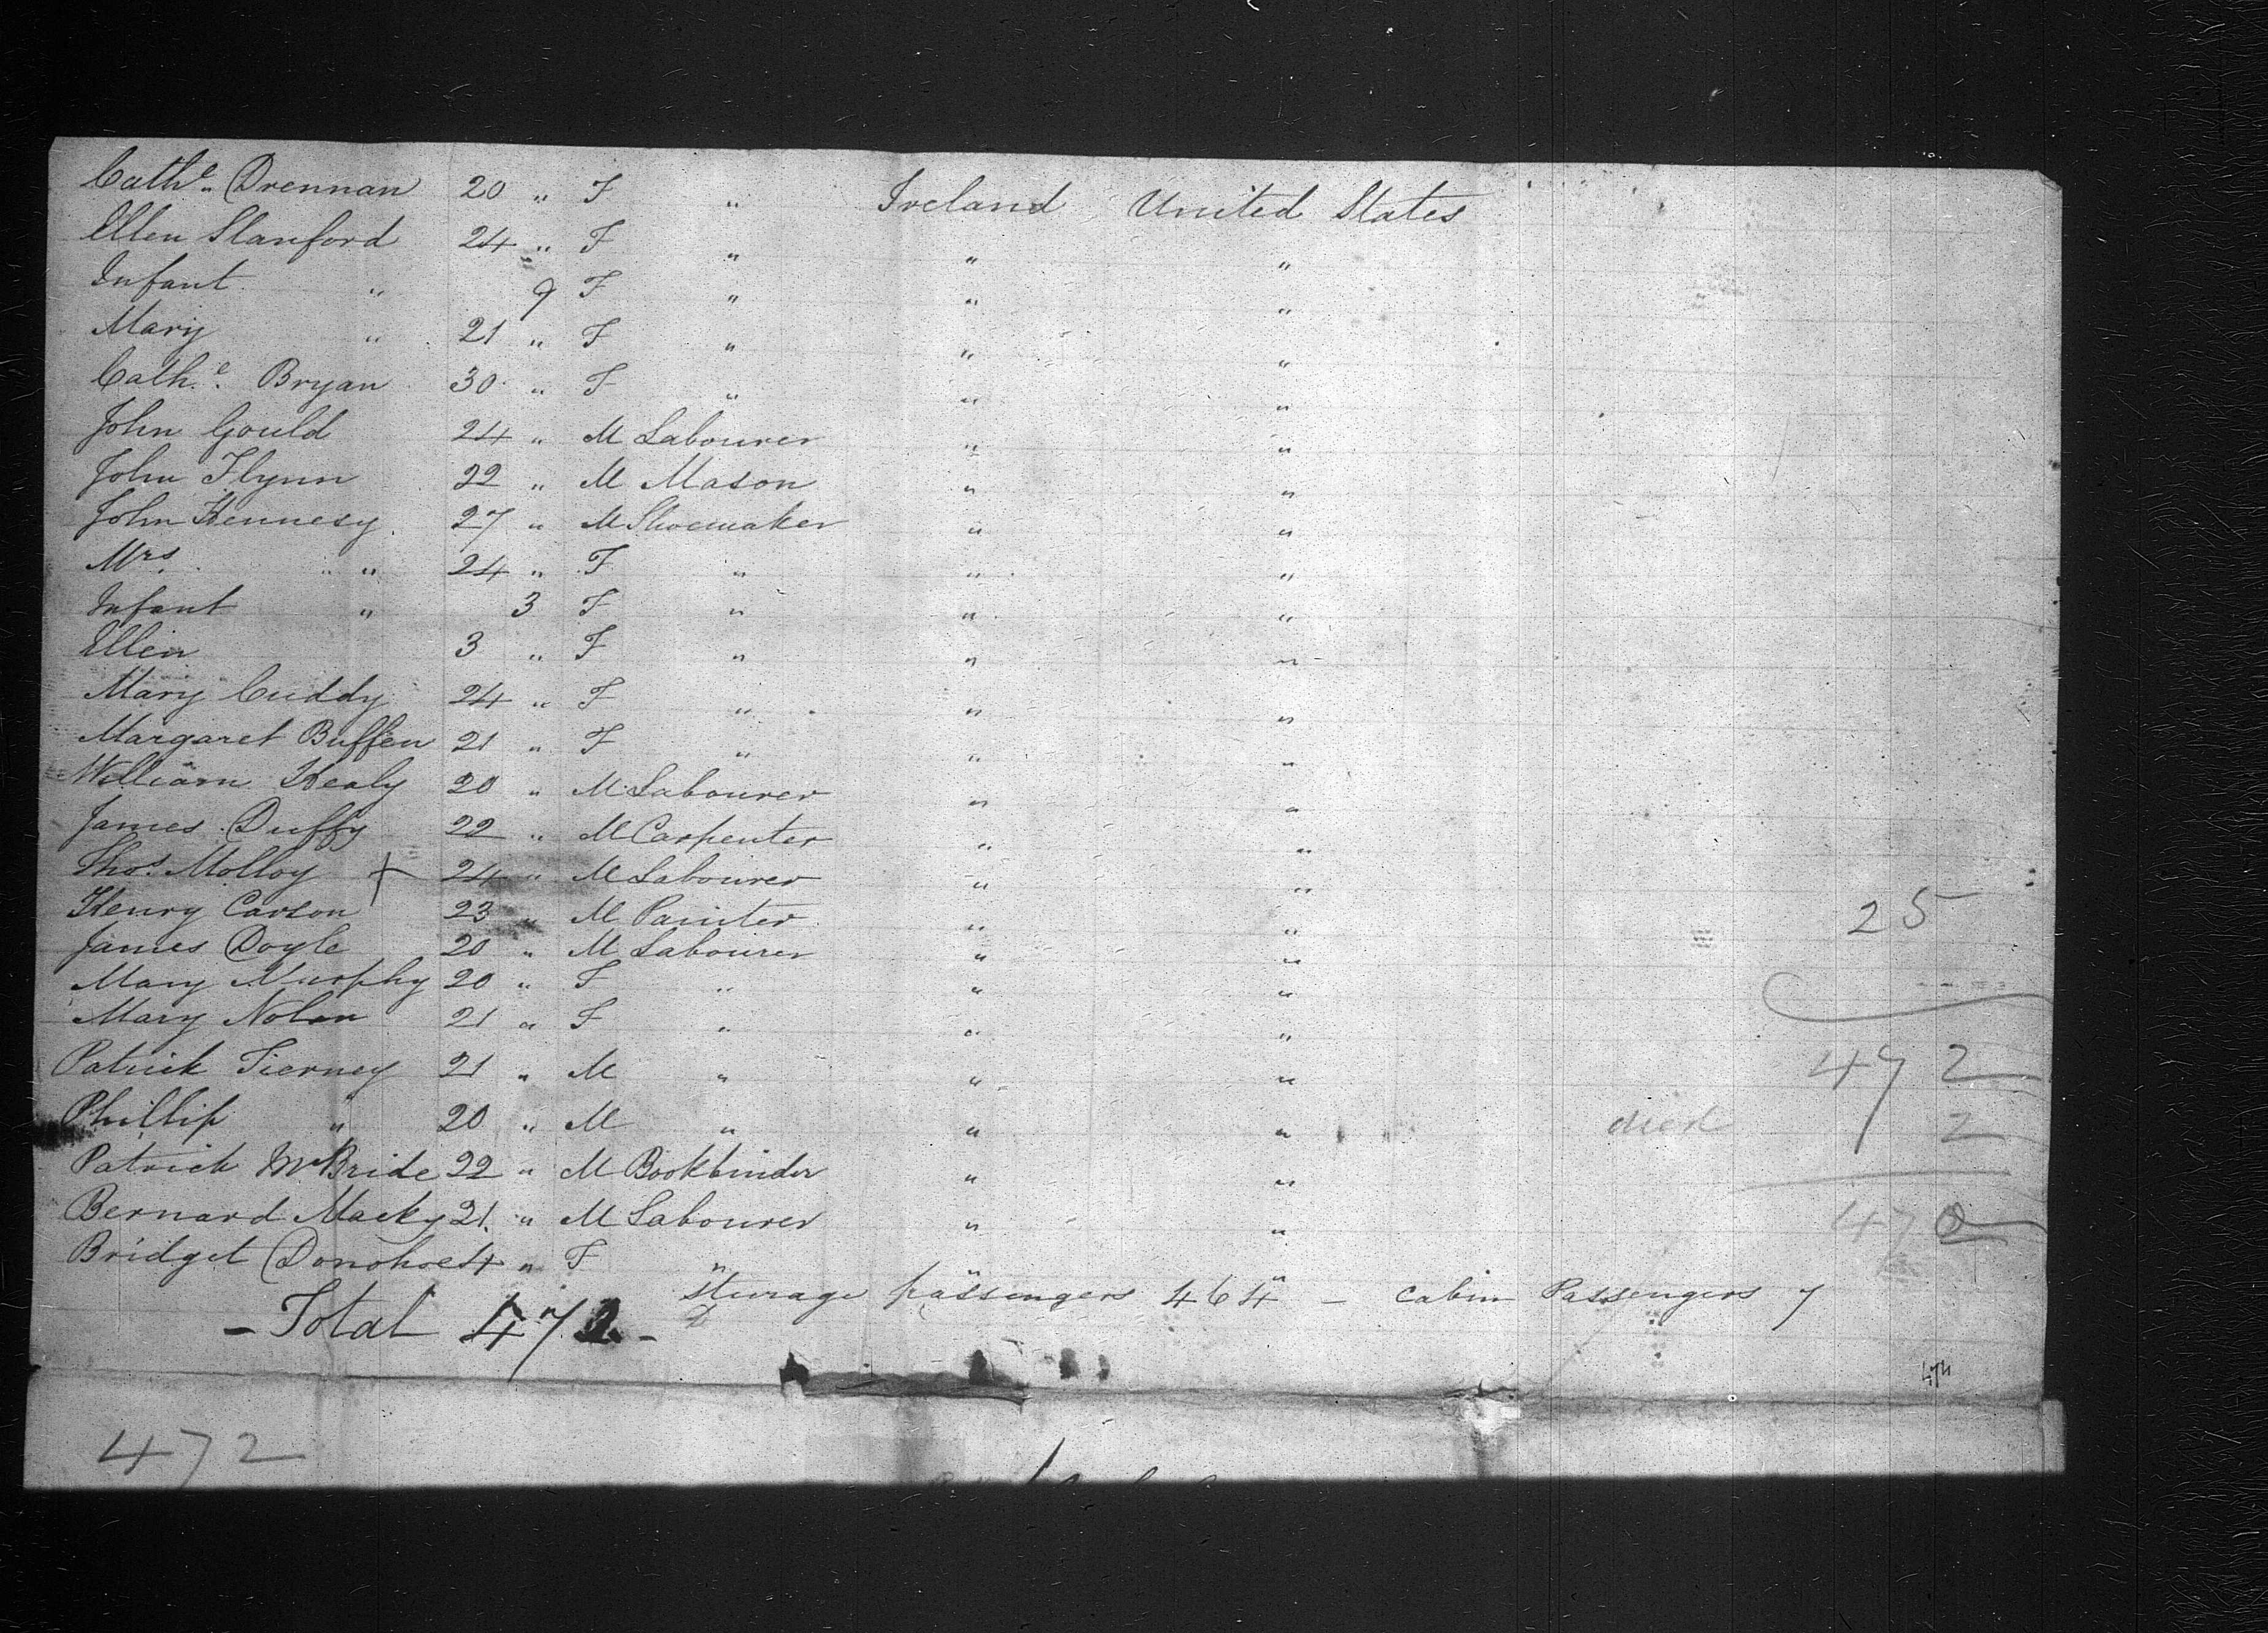 Cathe. Drennan 20 " F " Ireland United States
Ellen Stanford 24 " F " " "
Infant " 9 F " " "
Mary " 21 " F " " "
Cathe. Bryan 30 " F " " "
John Gould 24 " M Labourer " "
John Flynn 22 " M Mason " "
John Hennesy 27 " M Shoemaker " "
Mrs. " 24 " F " " "
Infant " 3 F " " "
Ellen 3 " F " " "
Mary Cuddy 24 " F " " "
Margaret Buffen 21 " F " " "
William Healy 20 " M Labourer " "
James Duffy 22 " M Carpenter " "
Thos. Molloy + 24 " M Labourer " "
Henry Carson 23 " M Painter " " 25
James Doyle 20 " M Labourer " "
Mary Murphy 20 " F " " "
Mary Nolan 21 " F " " "
Patrick Tierney 21 " M " " " 472
Phillip " 20 " M " " " died 2
Patrick McBride 22 " M Bookbinder " "
Bernard Macky 21 " M Labourer " " 470
Bridget Donohoe 4 " F " " "
- Total 472 - Sturage passengers 464 - Cabin Passengers 7
474
472